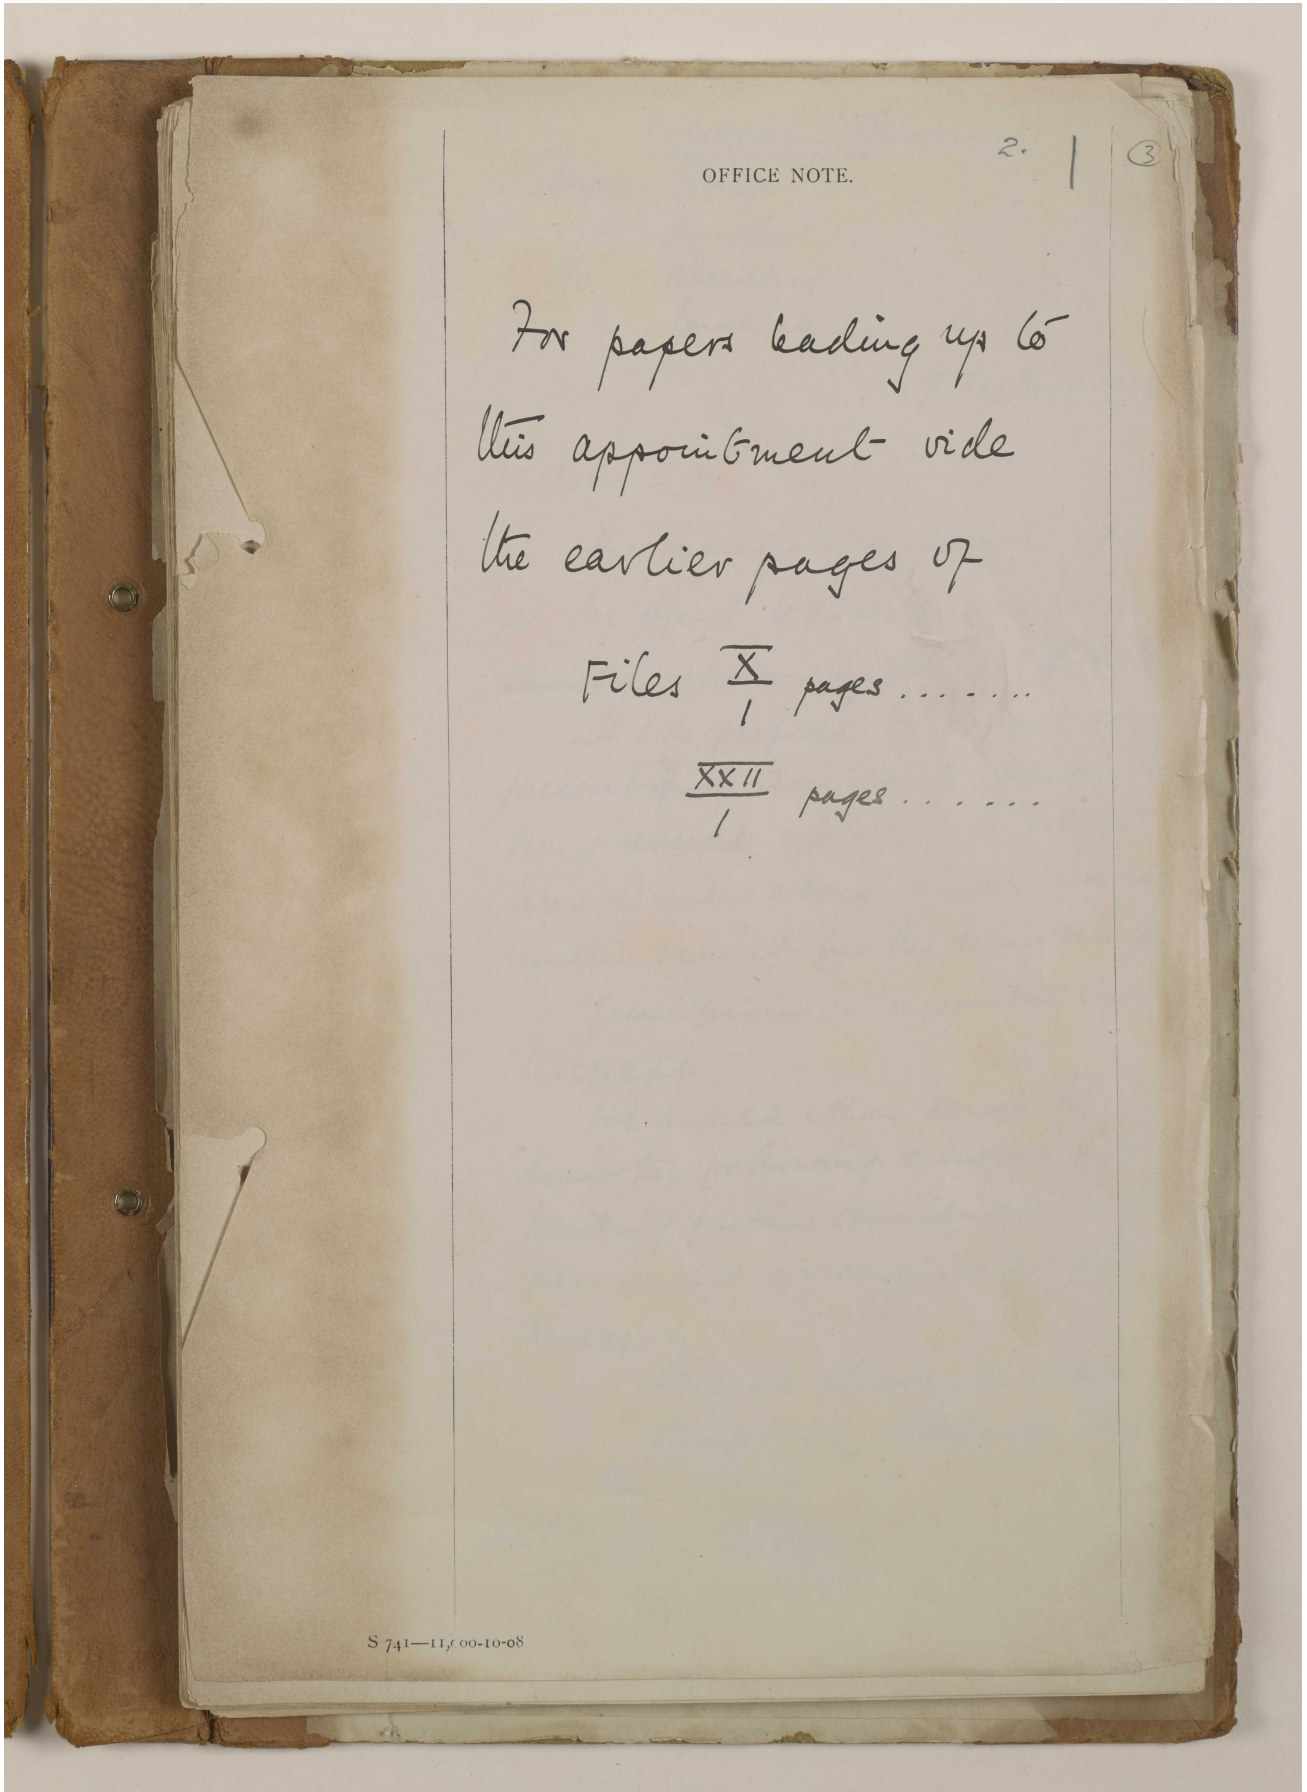 2. | 3
OFFICE NOTE.
For papers leading up to
this appointment vide
the earlier pages of
Files X/1 pages .......
XXII/1 pages .......
S 741—11,000-10-08